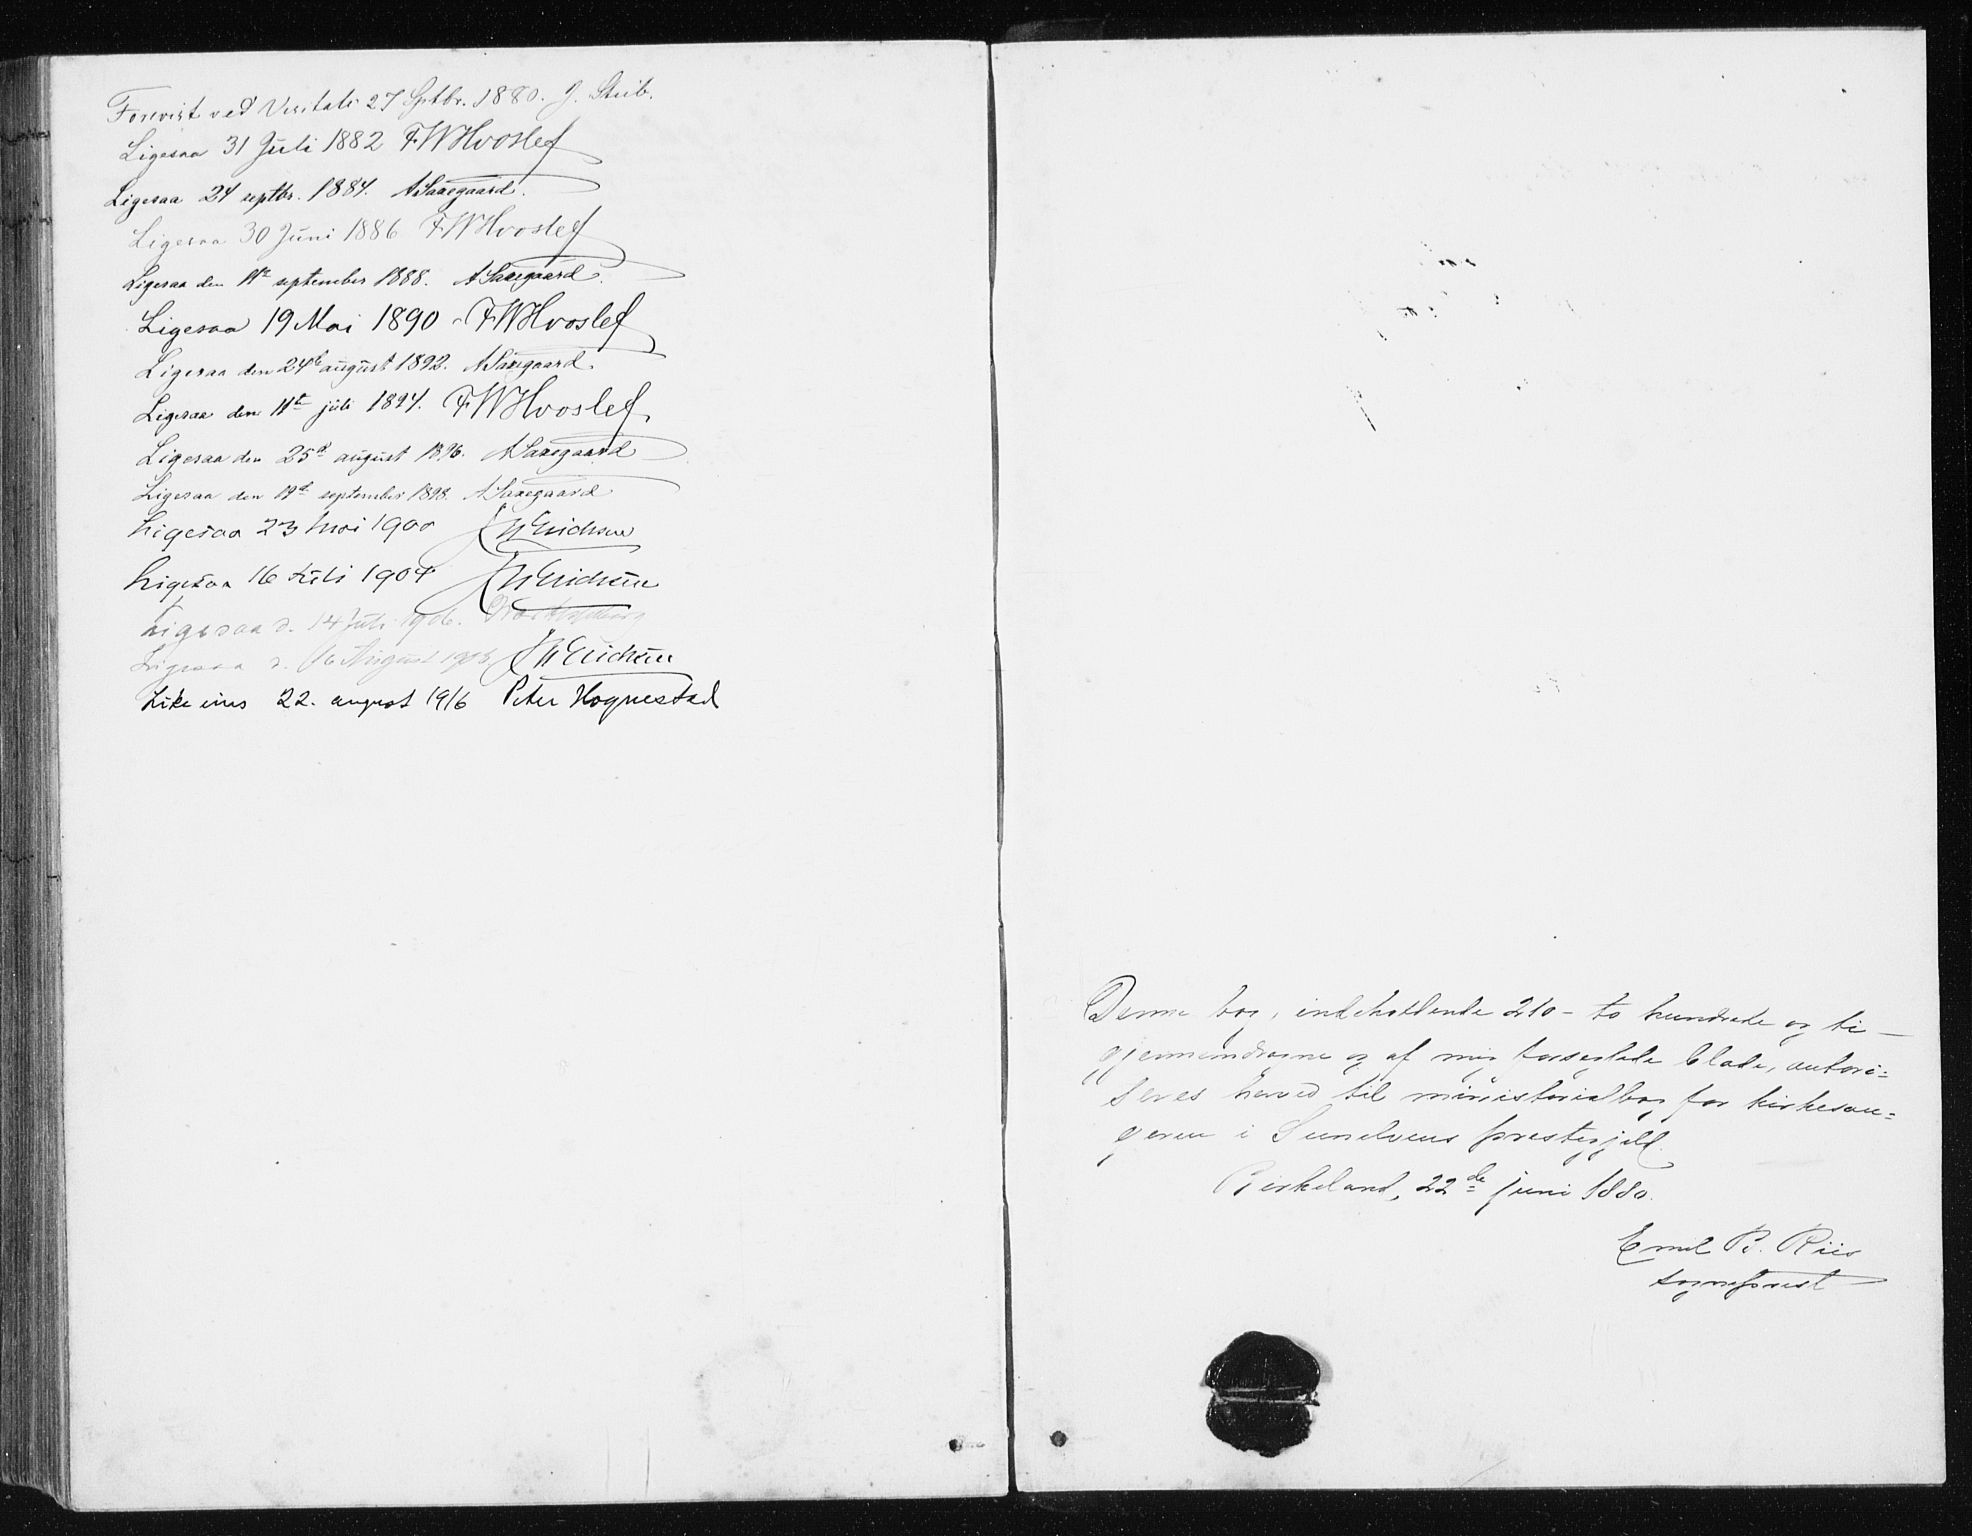 Forevist ved Visitats 27 Sptbr. 1880. J. Steib.
Ligesaa 31 Juli 1882 FWHvoslef
Ligesaa 24 septbr. 1884. ASaxegaard.
Ligesaa 30 Juni 1886 FWHvoslef
Ligesaa den 11te september 1888. ASaxegaard.
Ligesaa 19 Mai 1890 - FWHvoslef
Ligesaa den 24de august 1892. ASaxegaard.
Ligesaa den 11te juli 1894. FWHvoslef
Ligesaa den 25de august 1896. ASaxegaard
Ligesaa den september 1898. ASaxegaard
Ligesaa 23 Mai 1900 Erichsen
Ligesaa 16 Juli 1904 Erichsen
Ligesaa d. 14 Juli 1906.
Ligesaa d. 16 August Erichsen
Like eins 22. august 1916 Peter Hognestad
Denne bog, indeholdende 210 - to hundrede og ti -
gjennemdragne og af mig forseglede blade, autori=
seres herved til ministerialbog for kirkesan=
geren i Sunelvens prestegjeld.
Birkeland, 22de juni 1880.
Emil B. Riis
sogneprest